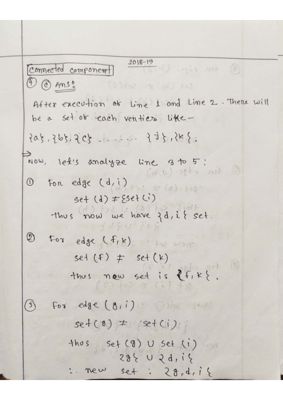 2018-19
Connected Component
Q @ Ans:
After execution of Line 1 and Line 2. There will
be a set of each vertices like-
{a}, {b}, {c} ........ {j}, {k}.
→ Now, let's analyze line 3 to 5:
① For edge (d, i)
set (d) ≠ {set (i)
thus now we have {d, i} set.
② For edge (f, k)
set (f) ≠ set (k)
thus now set is {f, k}.
③ For edge (g, i)
set (g) ≠ set (i)
thus set (g) ∪ set (i)
{g} ∪ {d, i}
∴ new set : {g, d, i}